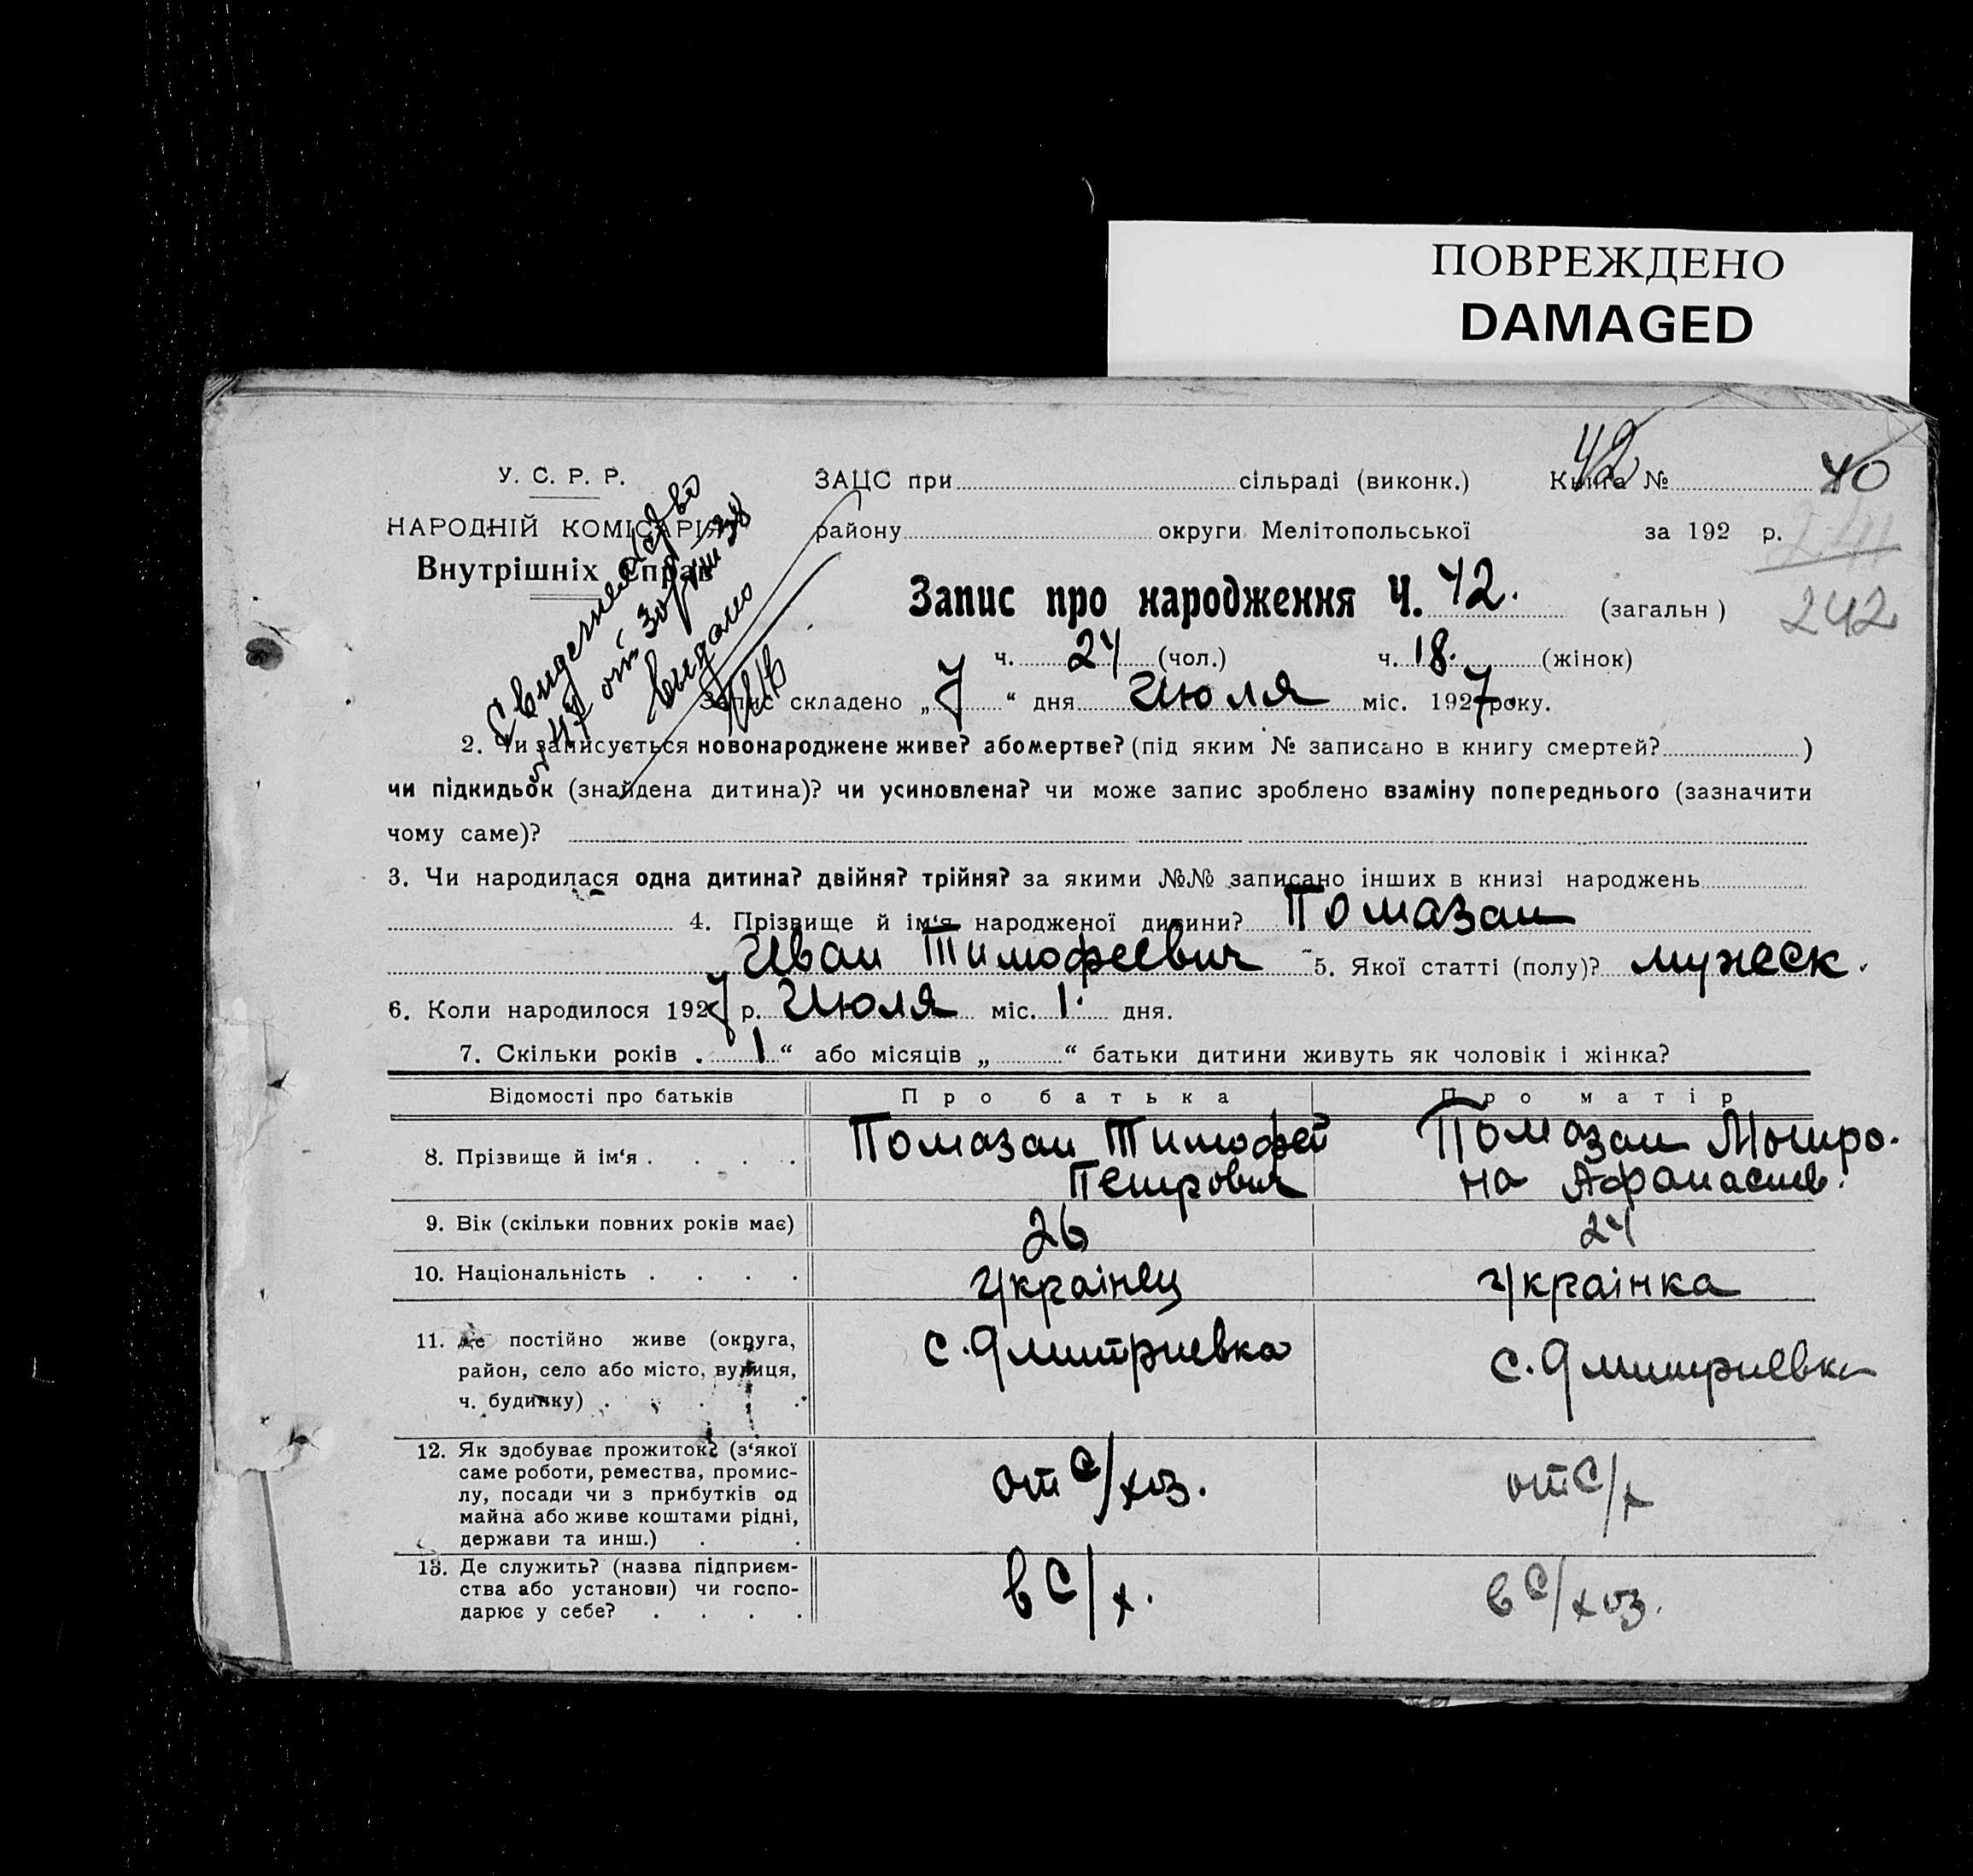 ПОВРЕЖДЕНО
DAMAGED
У. С. Р. Р.
НАРОДНІЙ КОМІСАРІЯТ
Внутрішніх Справ
Свидетельство
от
выдано
ЗАЦС при сільраді (виконк.) Книга № 42 40
району округи Мелітопольської за 192 р.
241
242
Запис про народження Ч. 42. (загальн)
ч. 24 (чол.) ч. 18. (жінок)
Запис складено „7“ дня Июля міс. 1927 року.
2. Чи записується новонароджене живе? або мертве? (під яким № записано в книгу смертей? )
чи підкидьок (знайдена дитина)? чи усиновлена? чи може запис зроблено взаміну попереднього (зазначити
чому саме)?
3. Чи народилася одна дитина? двійня? трійня? за якими №№ записано інших в книзі народжень
4. Прізвище й ім‘я народженої дитини? Помазан
Иван Тимофеевич 5. Якої статті (полу)? мужеск.
6. Коли народилося 1927 р. Июля міс. 1. дня.
7. Скільки років „ 1 “ або місяців „ “ батьки дитини живуть як чоловік і жінка?
Відомості про батьків Про батька Про матір
8. Прізвище й ім‘я . . . . Помазан Тимофей Петрович Помазан Мотро-на Афанасиев.
9. Вік (скільки повних років має) 26 24
10. Національність . . . . Українец Українка
11. Де постійно живе (округа, район, село або місто, вулиця, ч. будинку) . . . . с. Дмитриевка с. Дмитриевка
12. Як здобуває прожиток? (з‘якої саме роботи, ремества, промис-лу, посади чи з прибутків од майна або живе коштами рідні, держави та инш.) . . от с/хоз. от с/х
13. Де служить? (назва підприєм-ства або установи) чи госпо-дарює у себе? . . . . в с/х. в с/хоз.